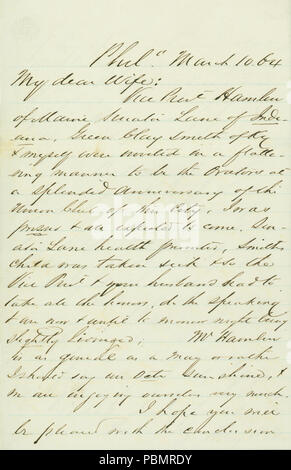 Phila March 10. 64
My dear Wife:
Vice Prest Hamlin
of Maine, Senator Lane of Inde-
ana, Green Clay Smith of Ky
& myself were invited in a flatte-
ring manner to be the Orators at
a splendid Anniversary of the
Union Club of this City. I was
& all expected to come. Sen-
ator Lane health Smiths
child was taken sick & so the
Vice Prest & your husband had to
take all the honors, do the speaking
& am now &
slightly Mr Hamlin
is as genial as a May or rather
I should say an Octr Sun shine, &
we are enjoying ourselves very much.
I hope you will
be pleased with the conclusion
alamy
Image ID: PBMRDY
www.alamy.com